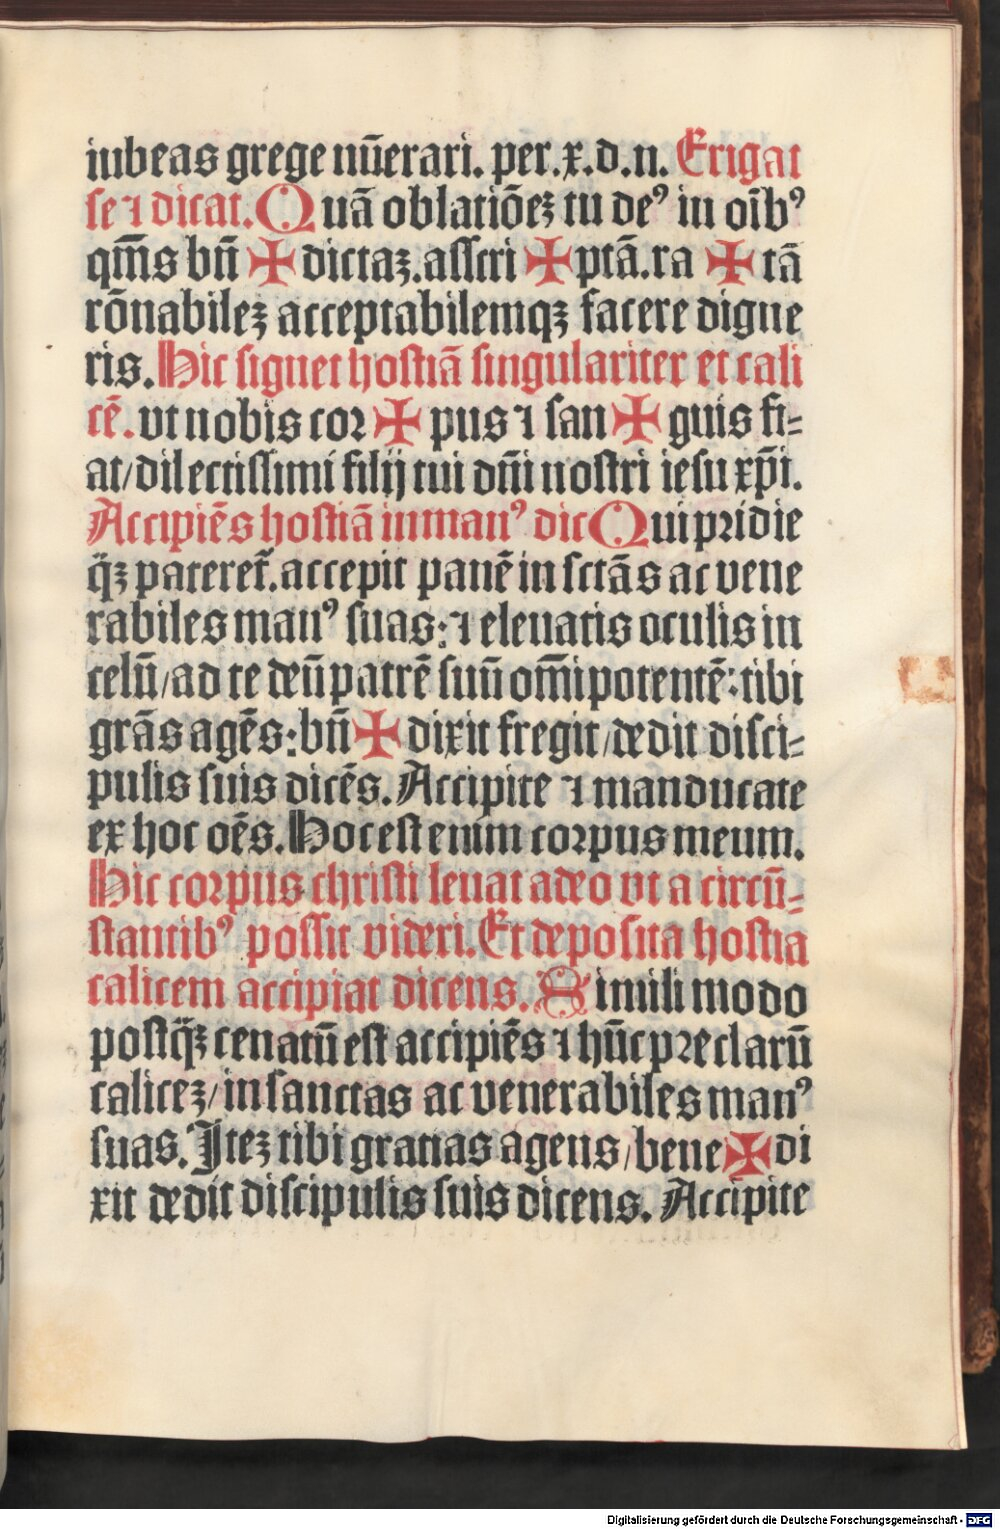 iubeas grege nūerari. per. x. d. n. Erigat
se ⁊ dicat. Quā oblatiōeꝫ tu deꝰ in oīb⁹
qm̄s bn̄ ✠ dictaꝫ. asscri ✠ ptā. ra ✠ tā
rōnabileꝫ acceptabilemqꝫ facere digne
ris. Hic signet hostiā singulariter et cali
cē. vt nobis cor ✠ pus ⁊ san ✠ guis fi⸗
at/ dilectissimi filij tui dn̄i nostri iesu xp̄i.
Accipiēs hostiā in man⁹ dic Qui pridie
q̈ꝫ pateret̄. accepit panē in sctās ac vene
rabiles man⁹ suas: ⁊ eleuatis oculis in
celū/ ad te deū patrē suū om̄ipotentē: tibi
grās agēs: bn̄ ✠ dixit fregit/ dedit disci⸗
pulis suis dicēs. Accipite ⁊ manducate
ex hoc oēs. Hoc est enim corpus meum.
Hic corpus christi leuat adeo vt a circū⸗
stantib⁹ possit videri. Et deposita hostia
calicem accipiat dicens. Simili modo
postq̈ꝫ cenatū est accipiēs ⁊ hūc preclarū
caliceꝫ/ in sanctas ac venerabiles man⁹
suas. Iteꝫ tibi gratias agens/ bene ✠ di
xit dedit discipulis suis dicens. Accipite
Digitalisierung gefördert durch die Deutsche Forschungsgemeinschaft - DFG